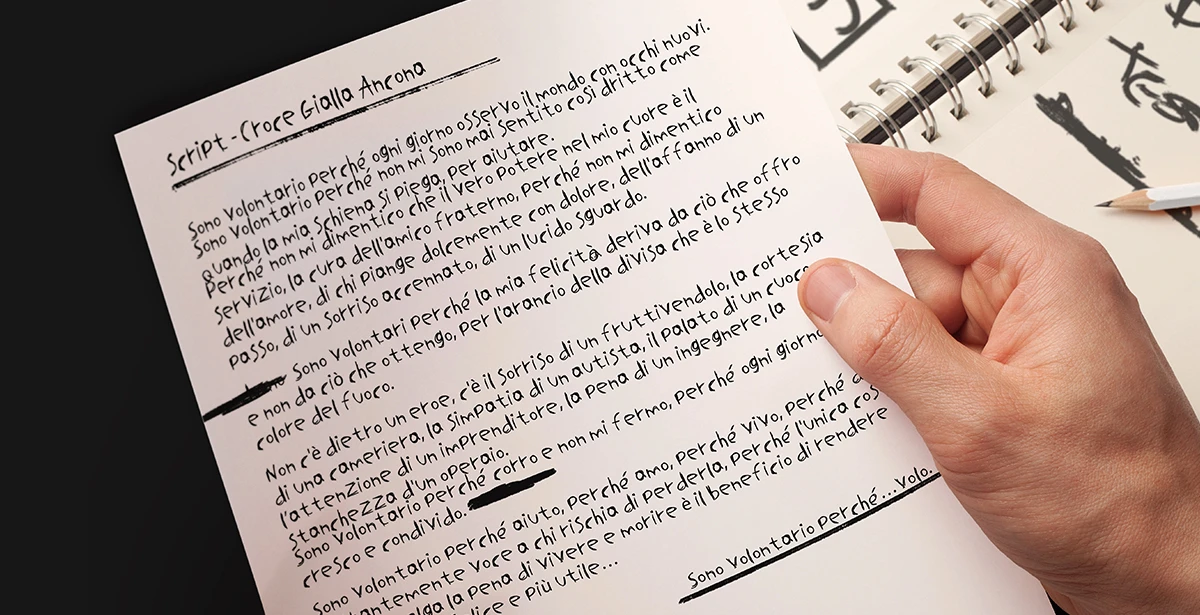 Script - Croce Gialla Ancona
Sono Volontario perché ogni giorno osservo il mondo con occhi nuovi.
Sono Volontario perché non mi sono mai sentito così dritto come
quando la mia schiena si piega, per aiutare.
Perché non mi dimentico che il vero potere nel mio cuore è il
servizio, la cura dell'amico fraterno, perché non mi dimentico
dell'amore, di chi piange dolcemente con dolore, dell'affanno di un
passo, di un sorriso accennato, di un lucido sguardo.
Sono Volontari perché la mia felicità deriva da ciò che offro
e non da ciò che ottengo, per l'arancio della divisa che è lo stesso
colore del fuoco.
Non c'è dietro un eroe, c'è il sorriso di un fruttivendolo, la cortesia
di una cameriera, la simpatia di un autista, il palato di un cuoco,
l'attenzione di un imprenditore, la pena di un ingegnere, la
stanchezza d'un operaio.
Sono Volontario perché corro e non mi fermo, perché ogni giorno
cresco e condivido.
Sono Volontario perché aiuto, perché amo, perché vivo, perché
voce a chi rischia di perderla, perché l'unica
la pena di vivere e morire è il beneficio di rendere
e più utile...
Sono Volontario perché...volo.